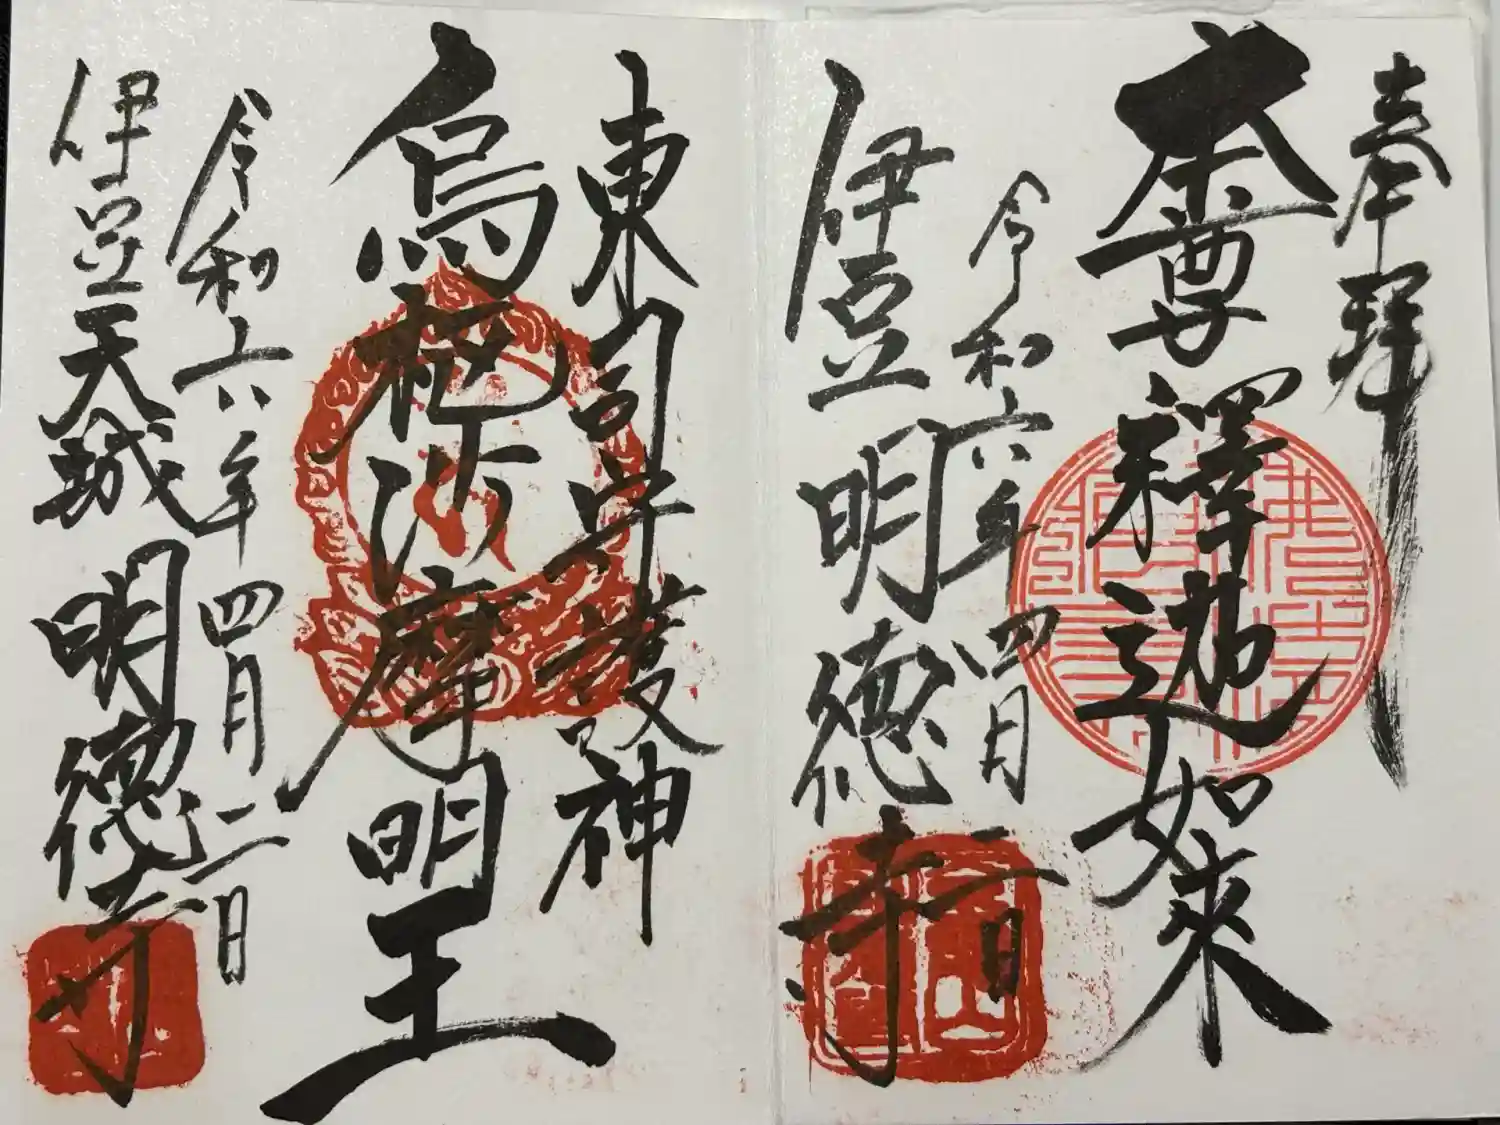 奉拝
本尊釋迦如来
令和六年四月二日
伊豆明徳寺
東司守護神
烏枢沙摩明王
令和六年四月二日
伊豆天城明徳寺